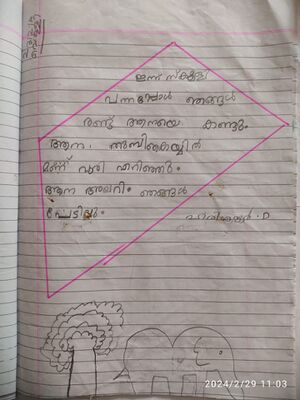 ഇന്ന് സ്കൂളി
വന്നപ്പോൾ ഞങ്ങൾ
രണ്ട് ആനയെ കണ്ടു.
ആന തുമ്പികൈയ്യിൽ
മണ്ണ് വാരി എറിഞ്ഞു.
ആന അലറി. ഞങ്ങൾ
പേടിച്ചു.
2024/2/29 11:03